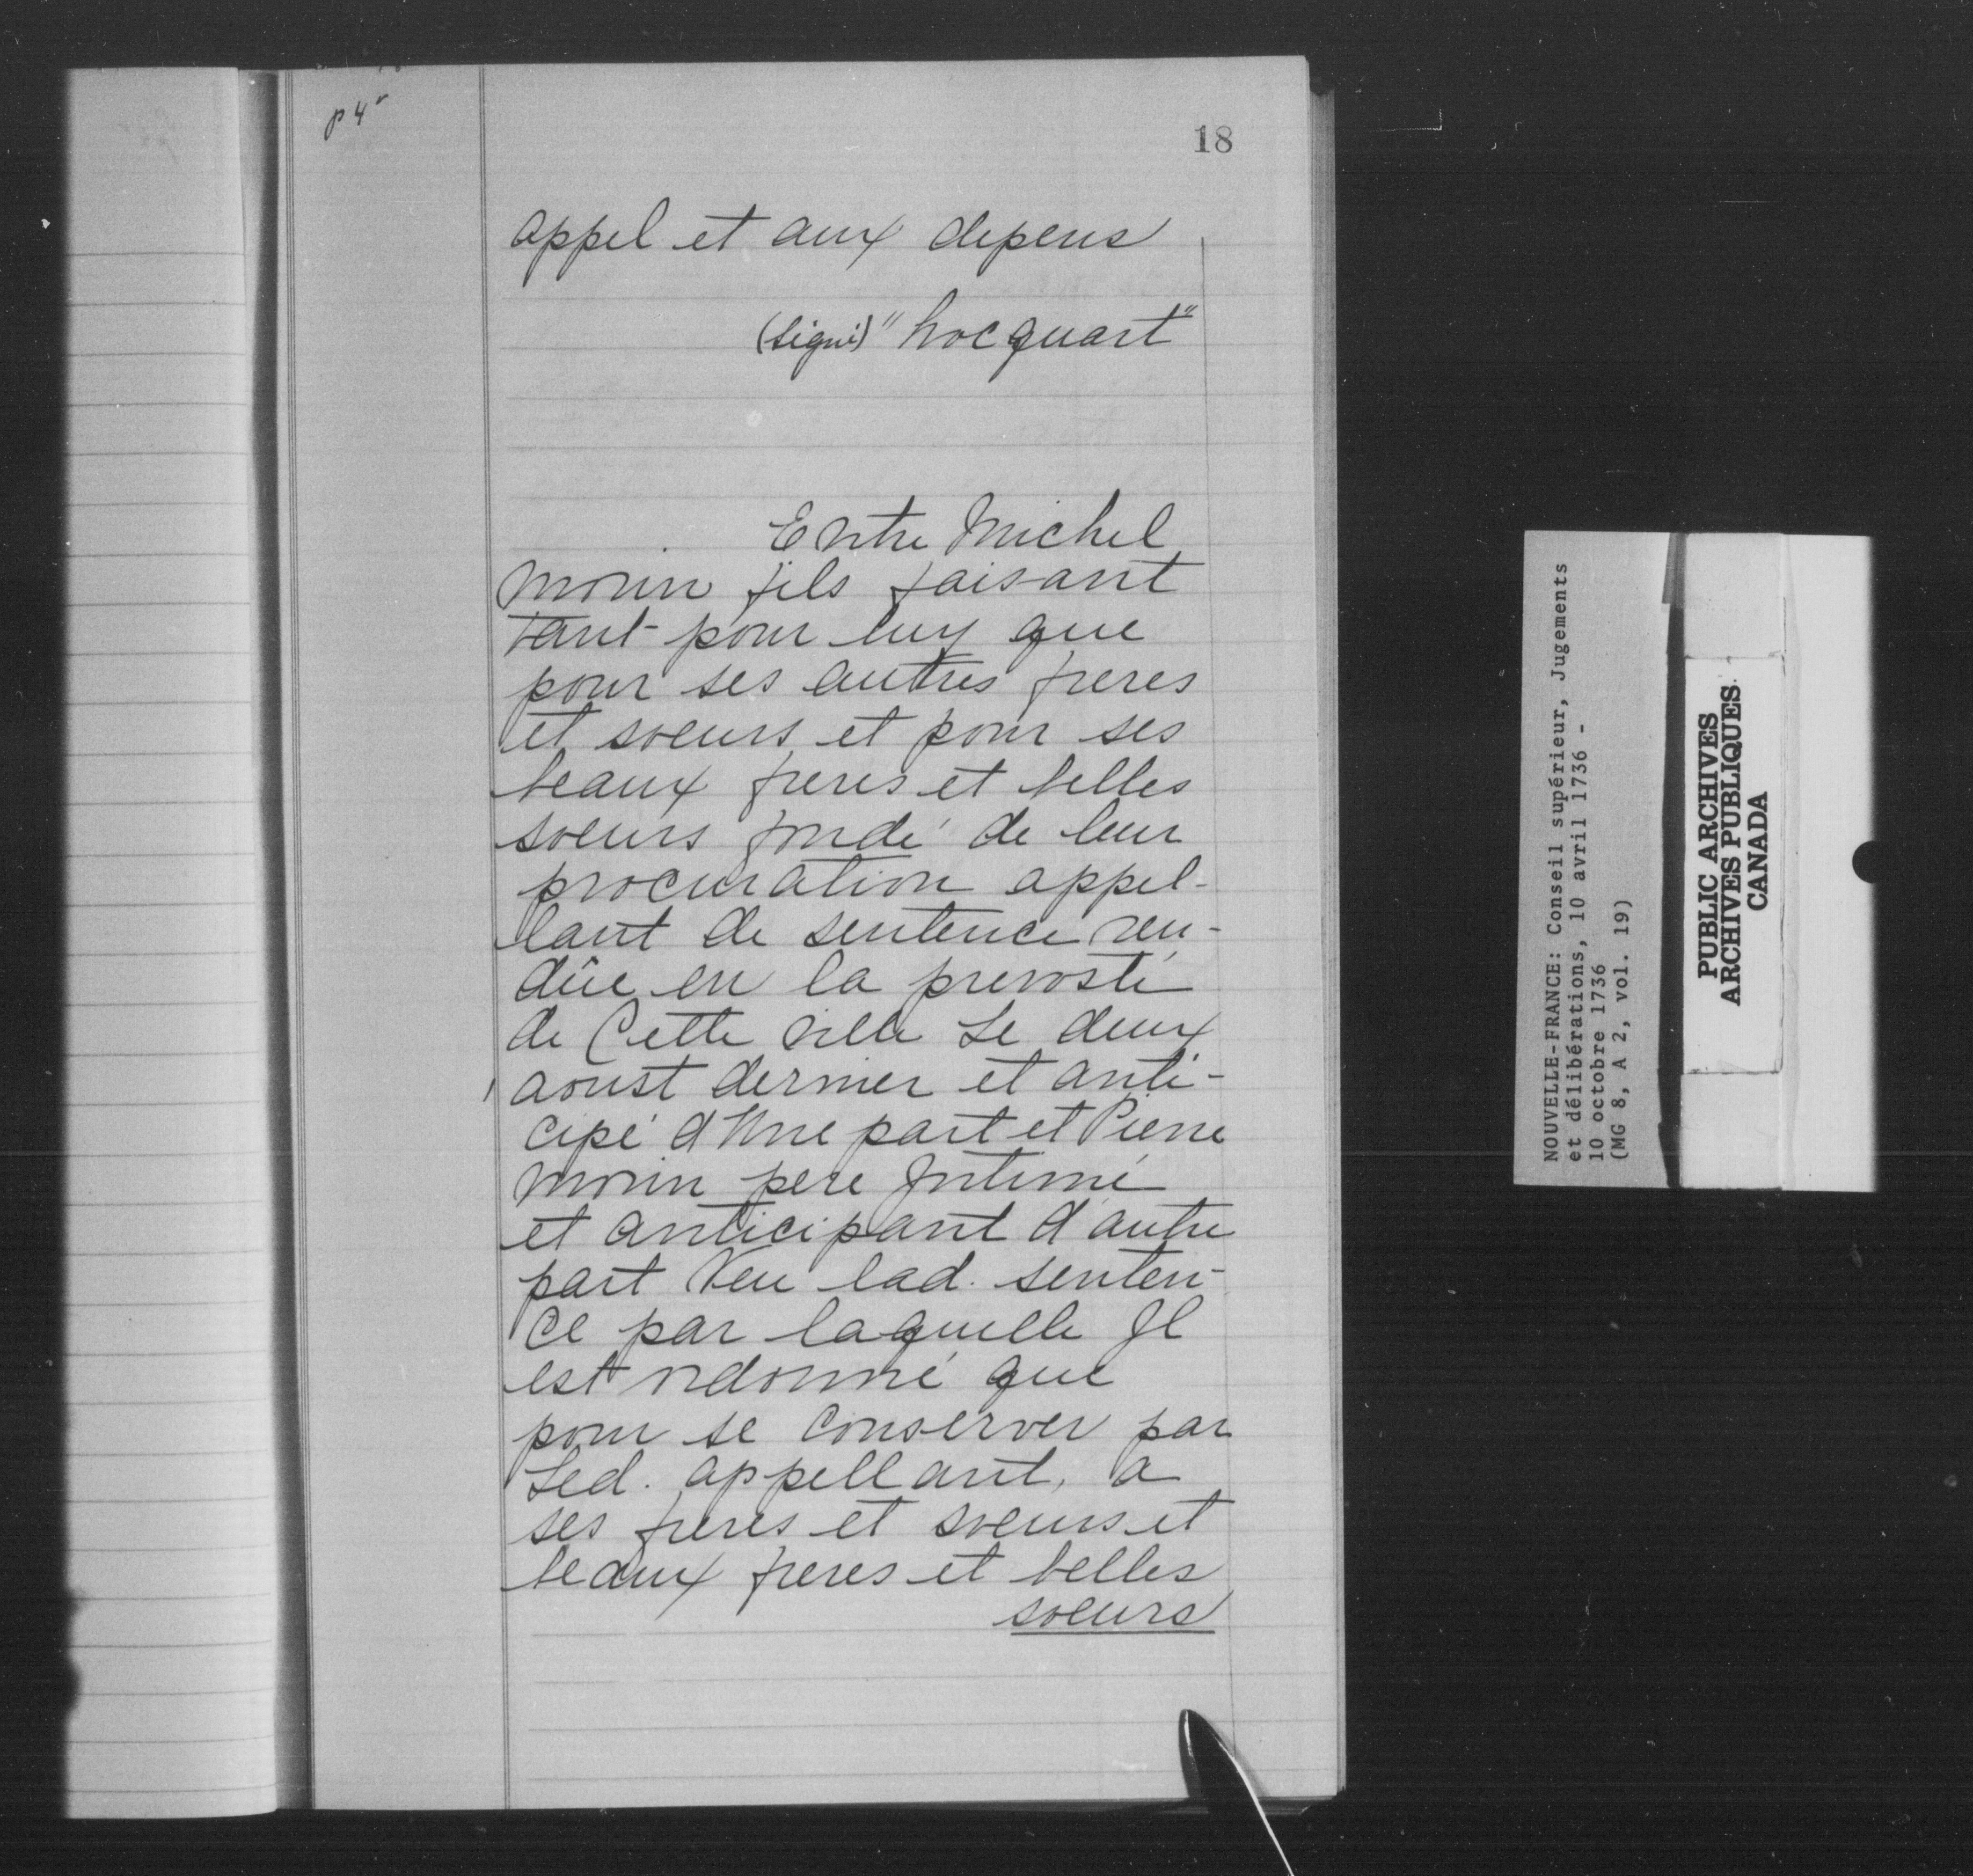 p 4r
18
appel et aux depens
(signé) "hocquart"
Entre Michel
morin fils faisant
tant pour luy que
pour ses autres freres
et soeurs et pour ses
beaux freres et belles
soeurs fondé de leur
procuration appel-
lant de sentence ren-
düe en la prevosté
de Cette ville Le deux
aoust dernier et anti-
cipé d'Une part et Pierre
morin pere Intimé
et anticipant d'autre
part Veu lad. senten-
ce par laquelle Il
est ordonné que
pour se conserver par
Led. appellant, a
ses freres et soeurs et
beaux freres et belles
soeurs
NOUVELLE-FRANCE: Conseil supérieur, Jugements
et délibérations, 10 avril 1736 -
10 octobre 1736
(MG 8, A 2, vol. 19)
PUBLIC ARCHIVES
ARCHIVES PUBLIQUES
CANADA